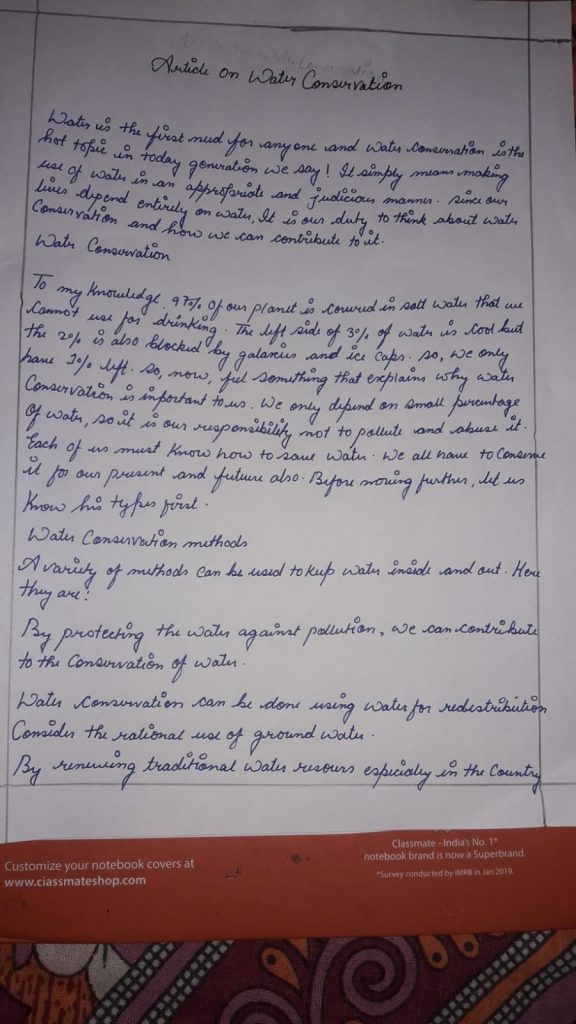 Article on Water Conservation
Water is the first need for anyone and water conservation is the
hot topic in today generation we say! It simply means making
use of water in an appropriate and judicious manner. Since our
lives depend entirely on water, It is our duty to think about water
Conservation and how we can contribute to it.
Water Conservation
To my knowledge, 97% of our planet is covered in salt water that we
cannot use for drinking. The left side of 3% of water is cool but
the 2% is also blocked by galaxies and ice caps. So, we only
have 1% left. So, now, feel something that explains why water
Conservation is important to us. We only depend on small percentage
Of water, so it is our responsibility not to pollute and abuse it.
Each of us must know how to save water. We all have to Conserve
it for our present and future also. Before moving further, let us
Know his types first.
Water Conservation methods
A variety of methods can be used to keep water inside and out. Here
they are:
By protecting the water against pollution, we can contribute
to the Conservation of water.
Water conservation can be done using water for redistribution
Consider the rational use of ground water.
By renewing traditional water resours especialy in the Country
Customize your notebook covers at
www.classmateshop.com
Classmate - India's No. 1*
notebook brand is now a Superbrand.
*Survey conducted by IMRB in Jan 2019.